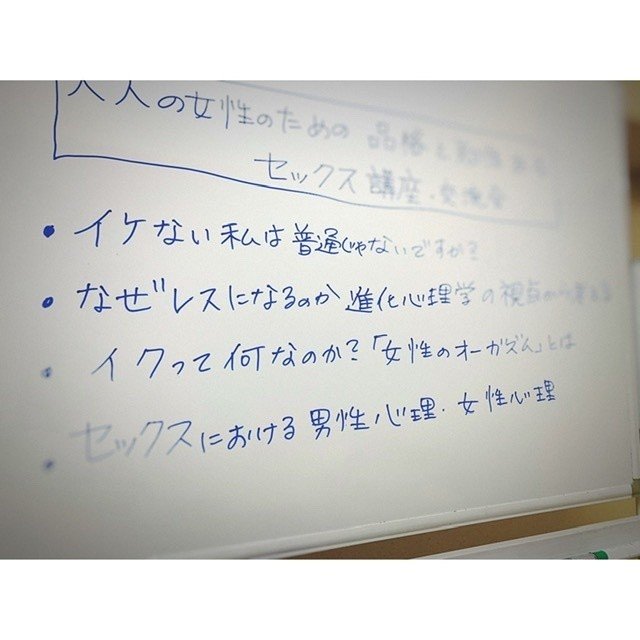 大人の女性のための 品格と
セックス 講座・
• イケない私は普通じゃないですか?
• なぜレスになるのか 進化心理学の視点から
• イクって何なのか?「女性のオーガズム」とは
• セックスにおける男性心理・女性心理